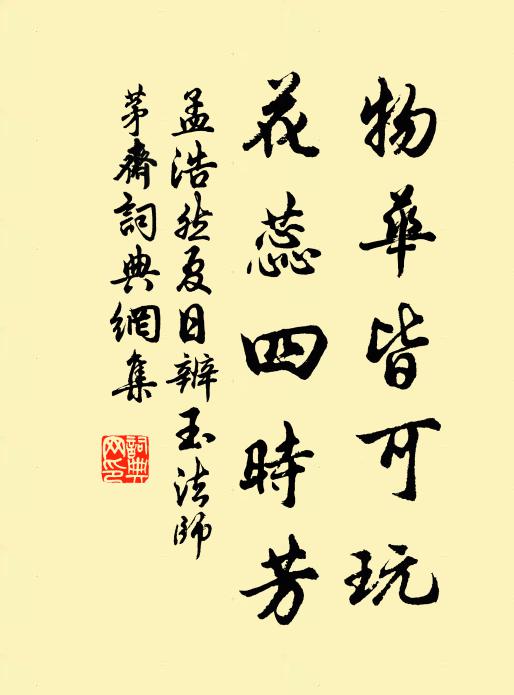 物華皆可玩
花蕊四時芳
孟浩然夏日辨玉法師
茅齋詞典網集
詞典网印